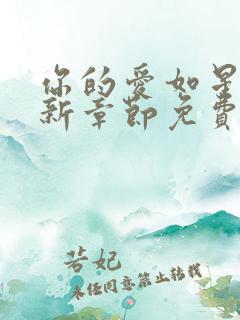 你的爱如星
新章節免費
若妃
未经同意禁止转载